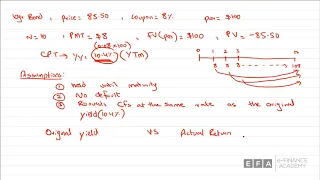 10yr Bond , price = 85.50 , coupon = 8% , par = $100
N = 10 , PMT = $8 , FV(par) = $100 , PV = -85.50
(0.08 x 100)
CPT → I/Y: 10.4% (YTM)
0 1 2 3 10
8 8 8 108
Assumptions:
① held until maturity
② No default
③ Reinvests Cfs at the same rate as the original
yield (10.4%)
Original yield VS Actual Return
EFA eFINANCE
ACADEMY